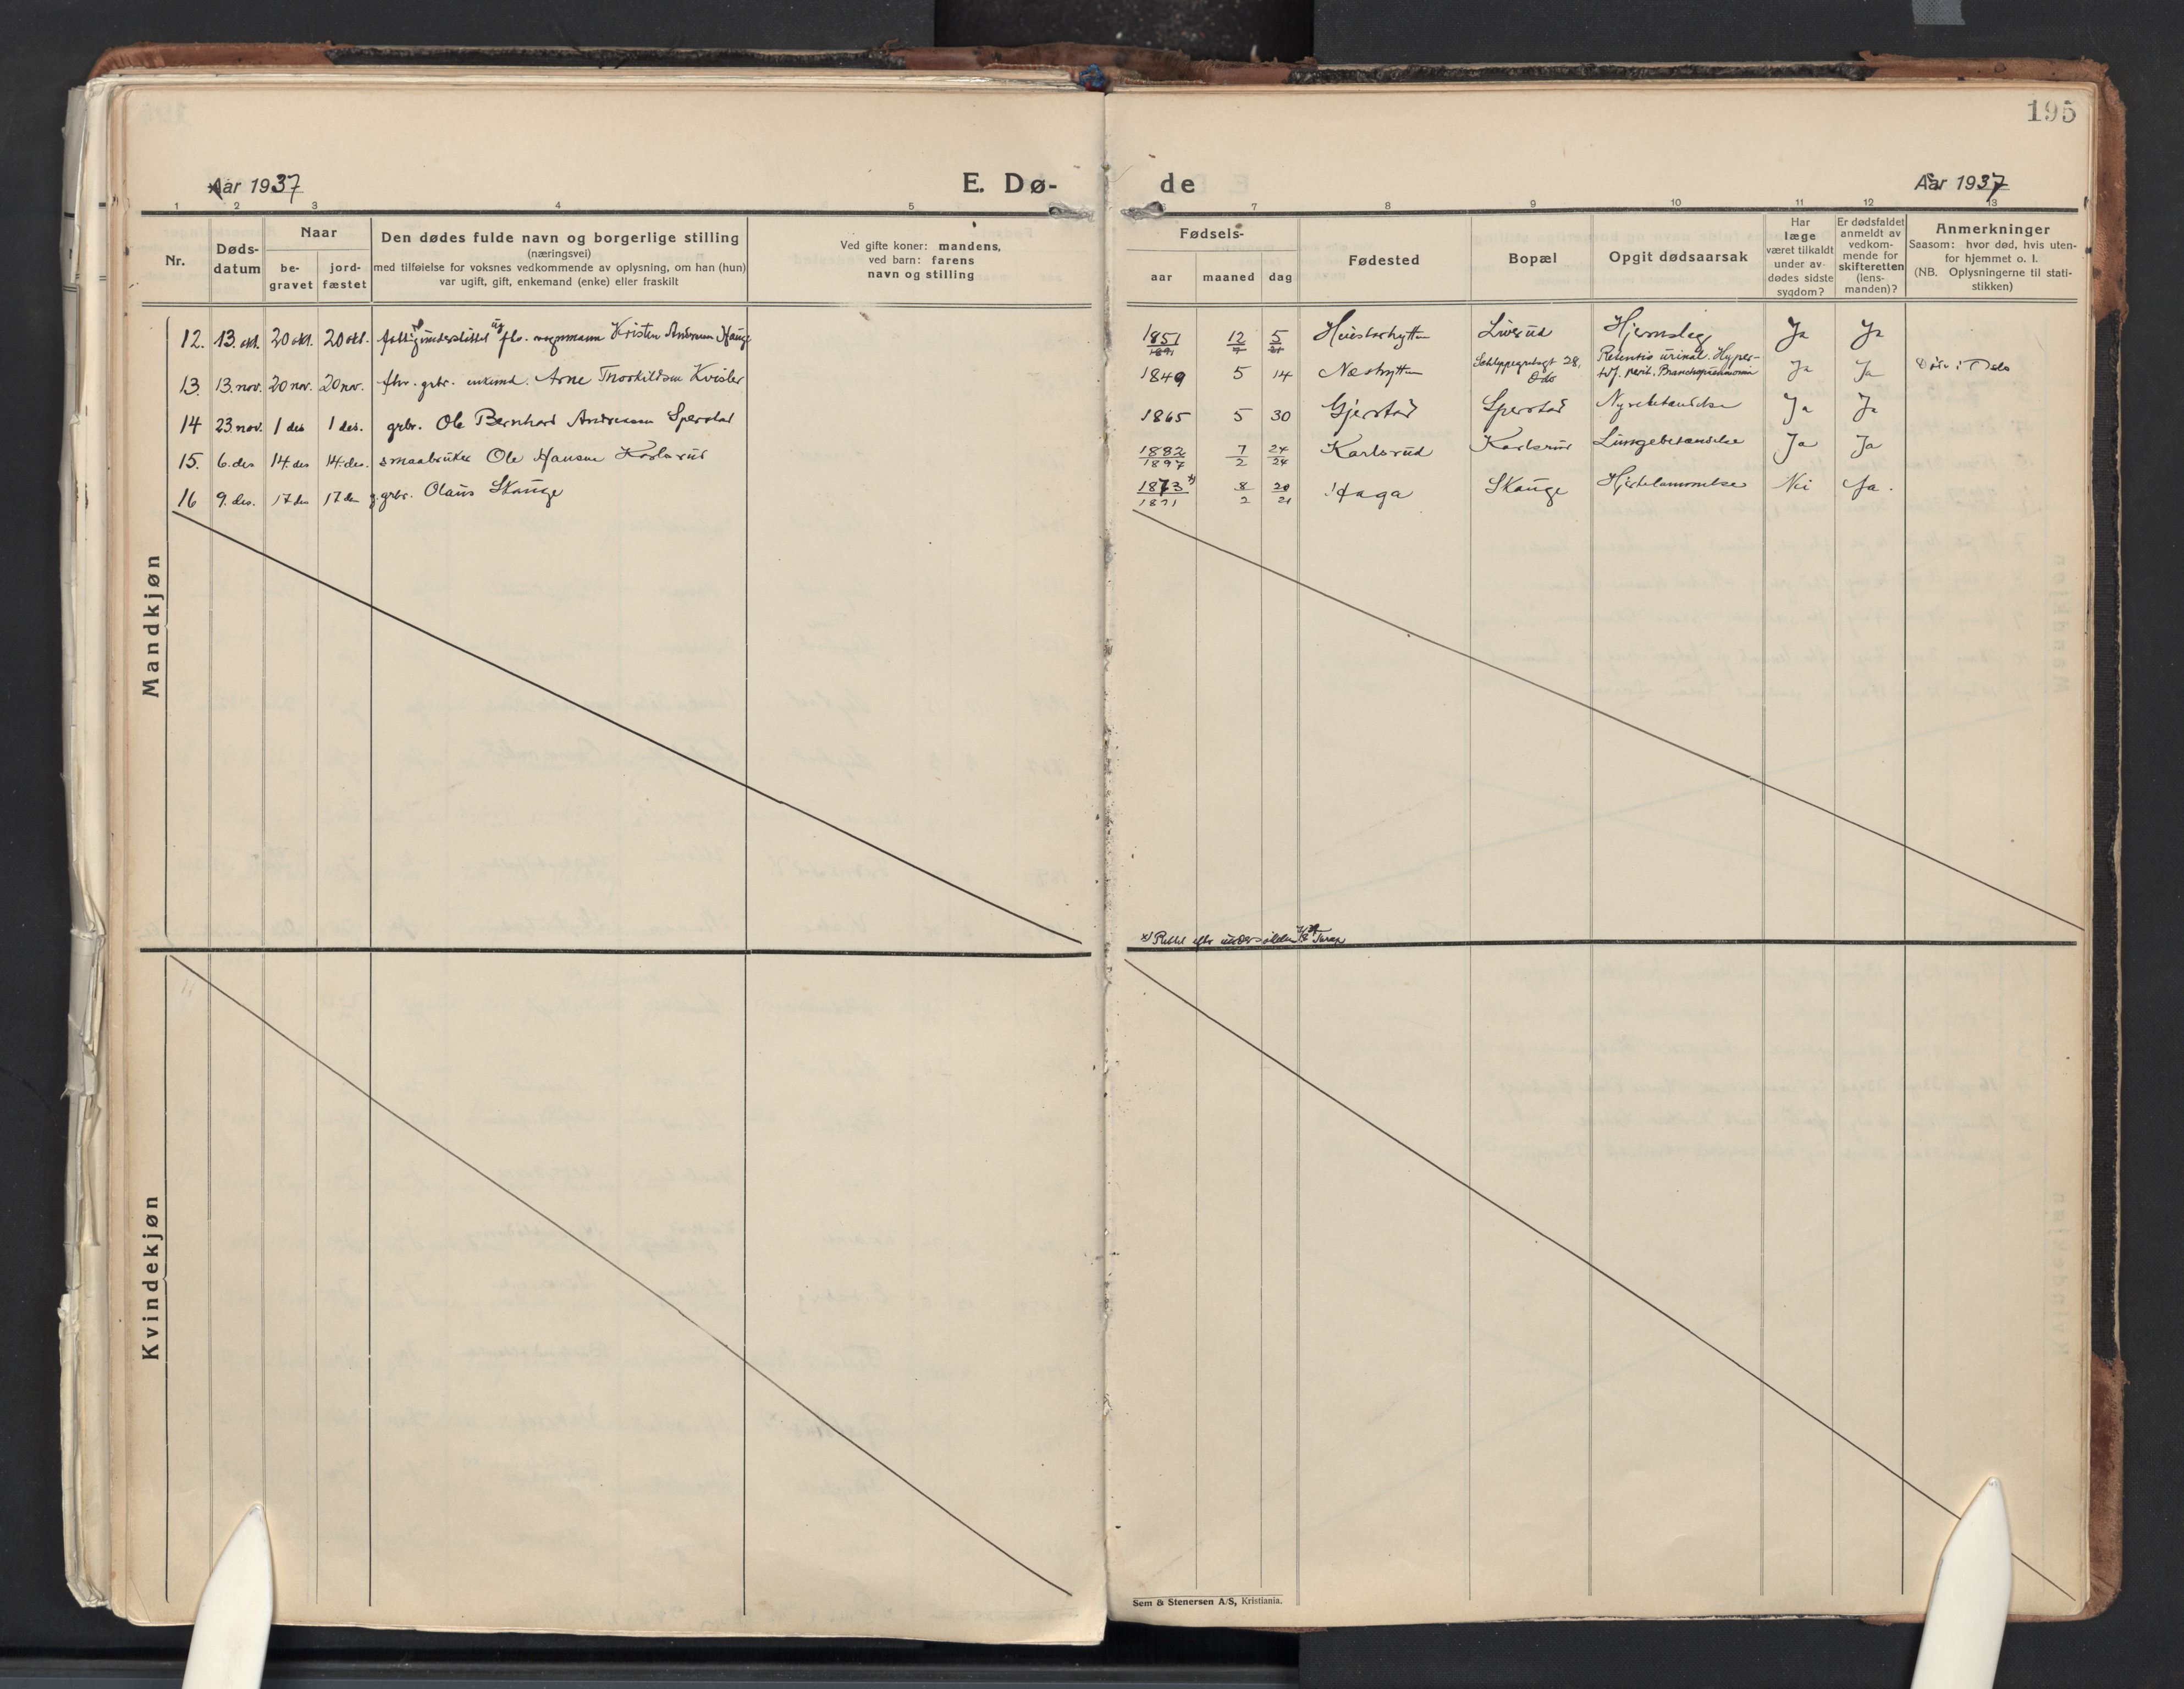 195
Aar 1937
E. Dø-
de
Aar 1937
1 2 3 4 5 7 8 9 10 11 12 13
Nr.
Døds-
datum
Naar
be-
gravet
jord-
fæstet
Den dødes fulde navn og borgerlige stilling
(næringsvei)
med tilføielse for voksnes vedkommende av oplysning, om han (hun)
var ugift, gift, enkemand (enke) eller fraskilt
Ved gifte koner: mandens,
ved barn: farens
navn og stilling
Fødsels-
aar maaned dag
Fødested
Bopæl
Opgit dødsaarsak
Har
læge
været tilkaldt
under av-
dødes sidste
sygdom?
Er dødsfaldet
anmeldt av
vedkom-
mende for
skifteretten
(lens-
manden)?
Anmerkninger
Saasom: hvor død, hvis uten-
for hjemmet o. l.
(NB. Oplysningerne til stati-
stikken)
Mandkjøn
12. 13. okt. 20 okt. 20 okt. ug fhv. Kristen Andersen Hauge 1851 12 5 Hjerneslag Ja Ja
13. 13. nov. 20 nov. 20 nov. fhv. grbr. enkemd. Arne Thorkildsen Kvisler 1849 5 14 28, Oslo Retentio urinal. Hyper- Ja Ja Oslo
14 23. nov. 1 des 1 des. grbr. Ole Bernhard Andreassen Sperstad 1865 5 30 Gjerstad Sperstad Nyrebetændelse Ja Ja
15. 6. des 14. des 14. des. smaabruker Ole Hansen Karlsrud 1882 1897 7 2 24 24 Karlsrud Karlsrud Lungebetændelse Ja Ja
16 9. des. 17 des 17 des g. grbr. Olaus Skauge 1873 x) 1871 8 2 20 21 Haga Skauge Hjertelammelse Nei Ja.
x) Rettet efter
Kvindekjøn
Sem & Stenersen A/S, Kristiania.